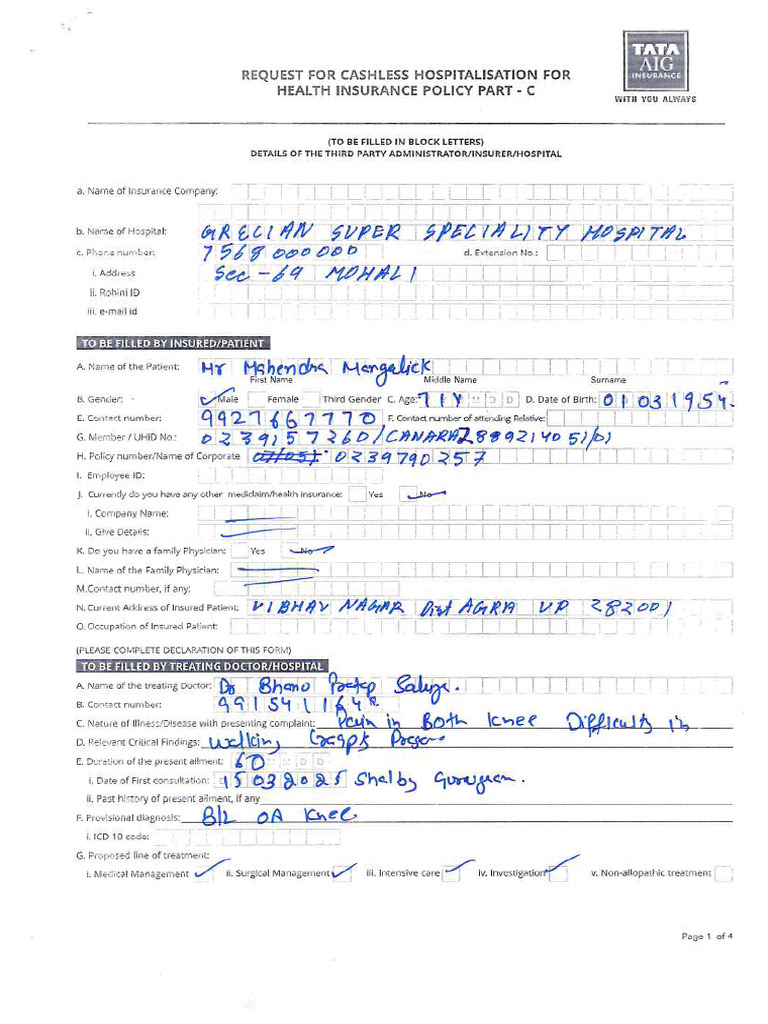 TATA
AIG
INSURANCE
WITH YOU ALWAYS
REQUEST FOR CASHLESS HOSPITALISATION FOR
HEALTH INSURANCE POLICY PART - C
(TO BE FILLED IN BLOCK LETTERS)
DETAILS OF THE THIRD PARTY ADMINISTRATOR/INSURER/HOSPITAL
a. Name of Insurance Company:
b. Name of Hospital: GRECIAN SUPER SPECIALITY HOSPITAL
c. Phone number: 7568000000 d. Extension No.:
i. Address Sec-69 MOHALI
ii. Rohini ID
iii. e-mail id
TO BE FILLED BY INSURED/PATIENT
A. Name of the Patient: Mr Mahendra Mangalick
First Name Middle Name Surname
B. Gender: Male Female Third Gender C. Age: 71Y M M D D D. Date of Birth: 01031954
E. Contact number: 9927667770 F. Contact number of attending Relative:
G. Member / UHID No.: 0239157260/CANARA2889214051/01
H. Policy number/Name of Corporate 0239790257
I. Employee ID:
J. Currently do you have any other mediclaim/health insurance: Yes No
i. Company Name:
ii. Give Details:
K. Do you have a family Physician: Yes No
L. Name of the Family Physician:
M.Contact number, if any:
N. Current Address of Insured Patient: VIBHAV NAGAR Dist AGRA UP 282001
O. Occupation of Insured Patient:
(PLEASE COMPLETE DECLARATION OF THIS FORM)
TO BE FILLED BY TREATING DOCTOR/HOSPITAL
A. Name of the treating Doctor: Dr Bhano Saluja.
B. Contact number: 991541164
C. Nature of Illness/Disease with presenting complaint: Pain in Both Knee Difficulty in
D. Relevant Critical Findings: Walking
E. Duration of the present ailment: 60 M M D D
i. Date of First consultation: 15032025 Shalby
ii. Past history of present ailment, if any
F. Provisional diagnosis: B/L OA Knee
i. ICD 10 code:
G. Proposed line of treatment:
i. Medical Management ii. Surgical Management iii. Intensive care iv. Investigation v. Non-allopathic treatment
Page 1 of 4